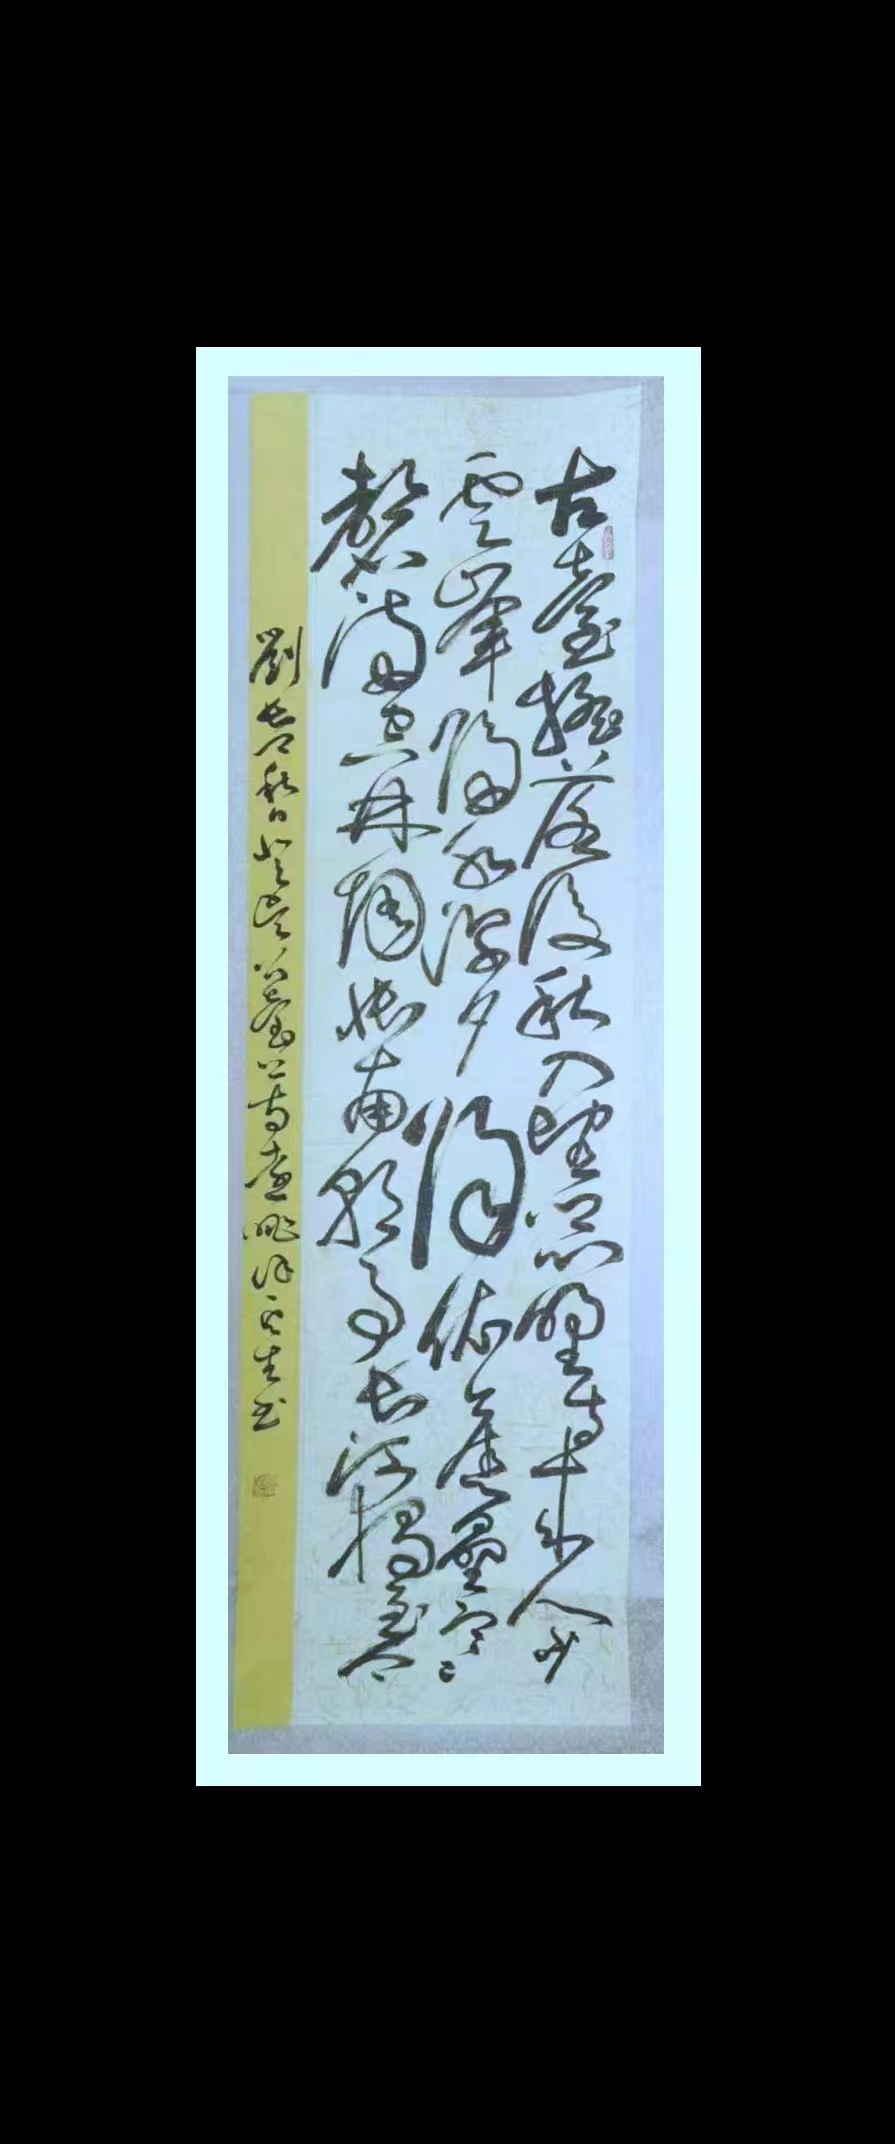 古臺搖落後秋入望鄉心野寺來人少
雲峰隔水深夕陽依舊壘寒
磬滿空林惆悵南朝事長江獨至今
劉長卿秋日登吳公臺上寺遠眺 書